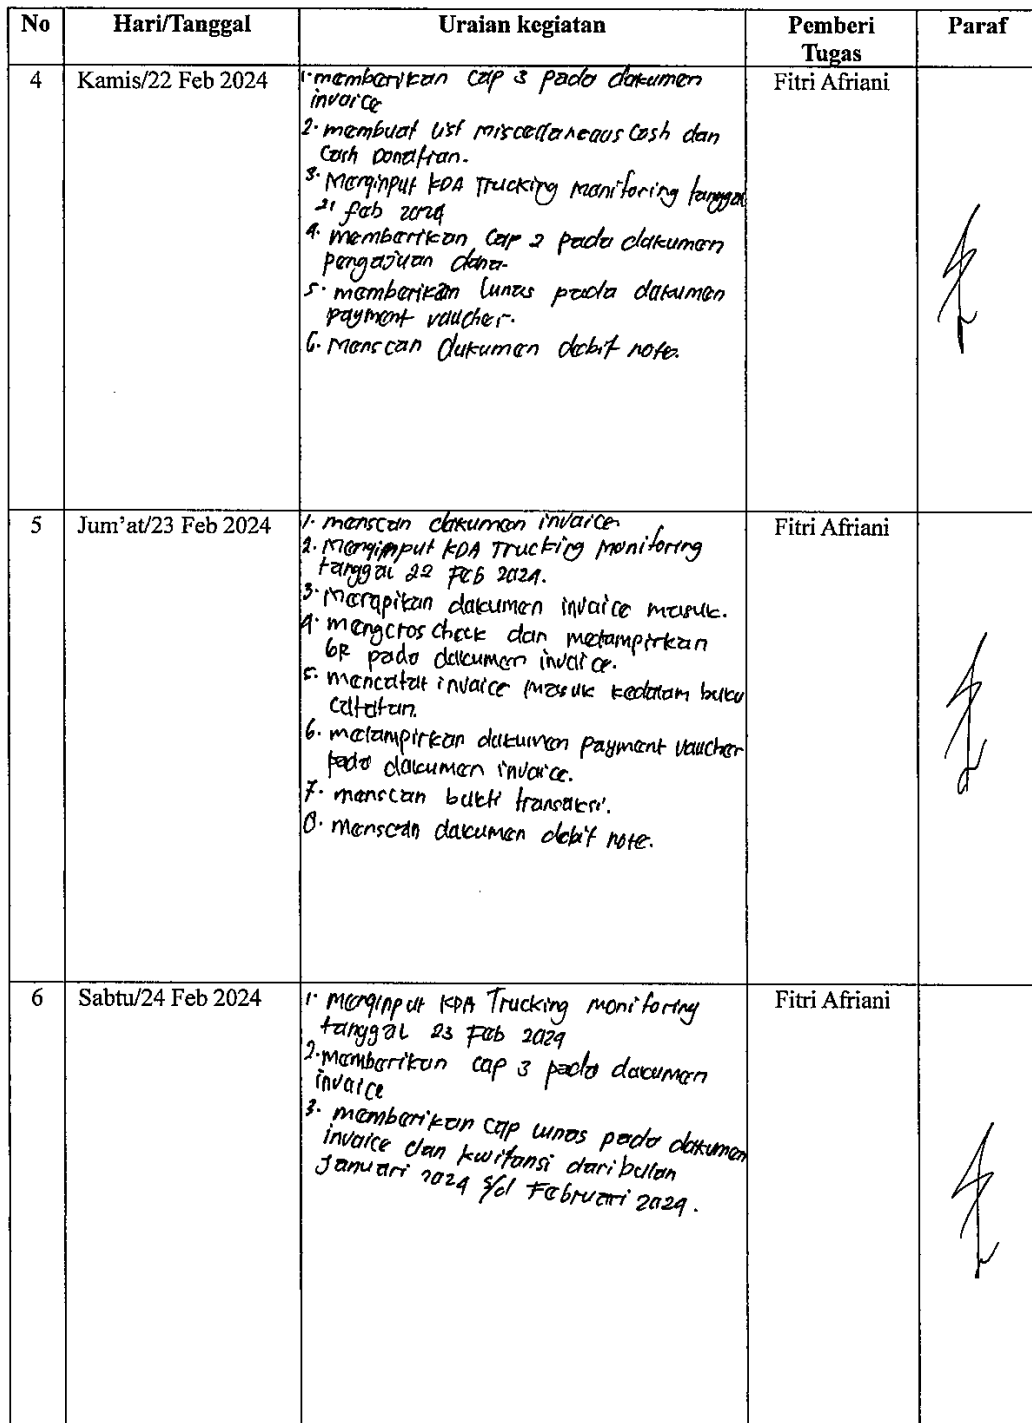 No Hari/Tanggal Uraian kegiatan Pemberi Tugas Paraf
4 Kamis/22 Feb 2024 Fitri Afriani
1. memberikan cap 3 pada dokumen
invoice
2. membuat list miscellaneous cash dan
cash donation.
3. Menginput KDA Trucking monitoring tanggal
21 feb 2024
4. memberikan cap 2 pada dokumen
pengajuan dana.
5. memberikan lunas pada dokumen
payment voucher.
6. Menscan dokumen debit note.
5 Jum'at/23 Feb 2024 Fitri Afriani
1. menscan dokumen invoice
2. Mengimput KDA Trucking monitoring
tanggal 22 Feb 2024.
3. Merapikan dokumen invoice masuk.
4. mengcros check dan melampirkan
GR pada dokumen invoice.
5. mencatat invoice masuk kedalam buku
catatan.
6. melampirkan dokumen payment voucher
pada dokumen invoice.
7. menscan bukti transaksi.
8. menscan dokumen debit note.
6 Sabtu/24 Feb 2024 Fitri Afriani
1. menginput KDA Trucking monitoring
tanggal 23 Feb 2024
2. memberikan cap 3 pada dokumen
invoice
3. memberikan cap lunas pada dokumen
invoice dan kwitansi dari bulan
Januari 2024 s/d Februari 2024.